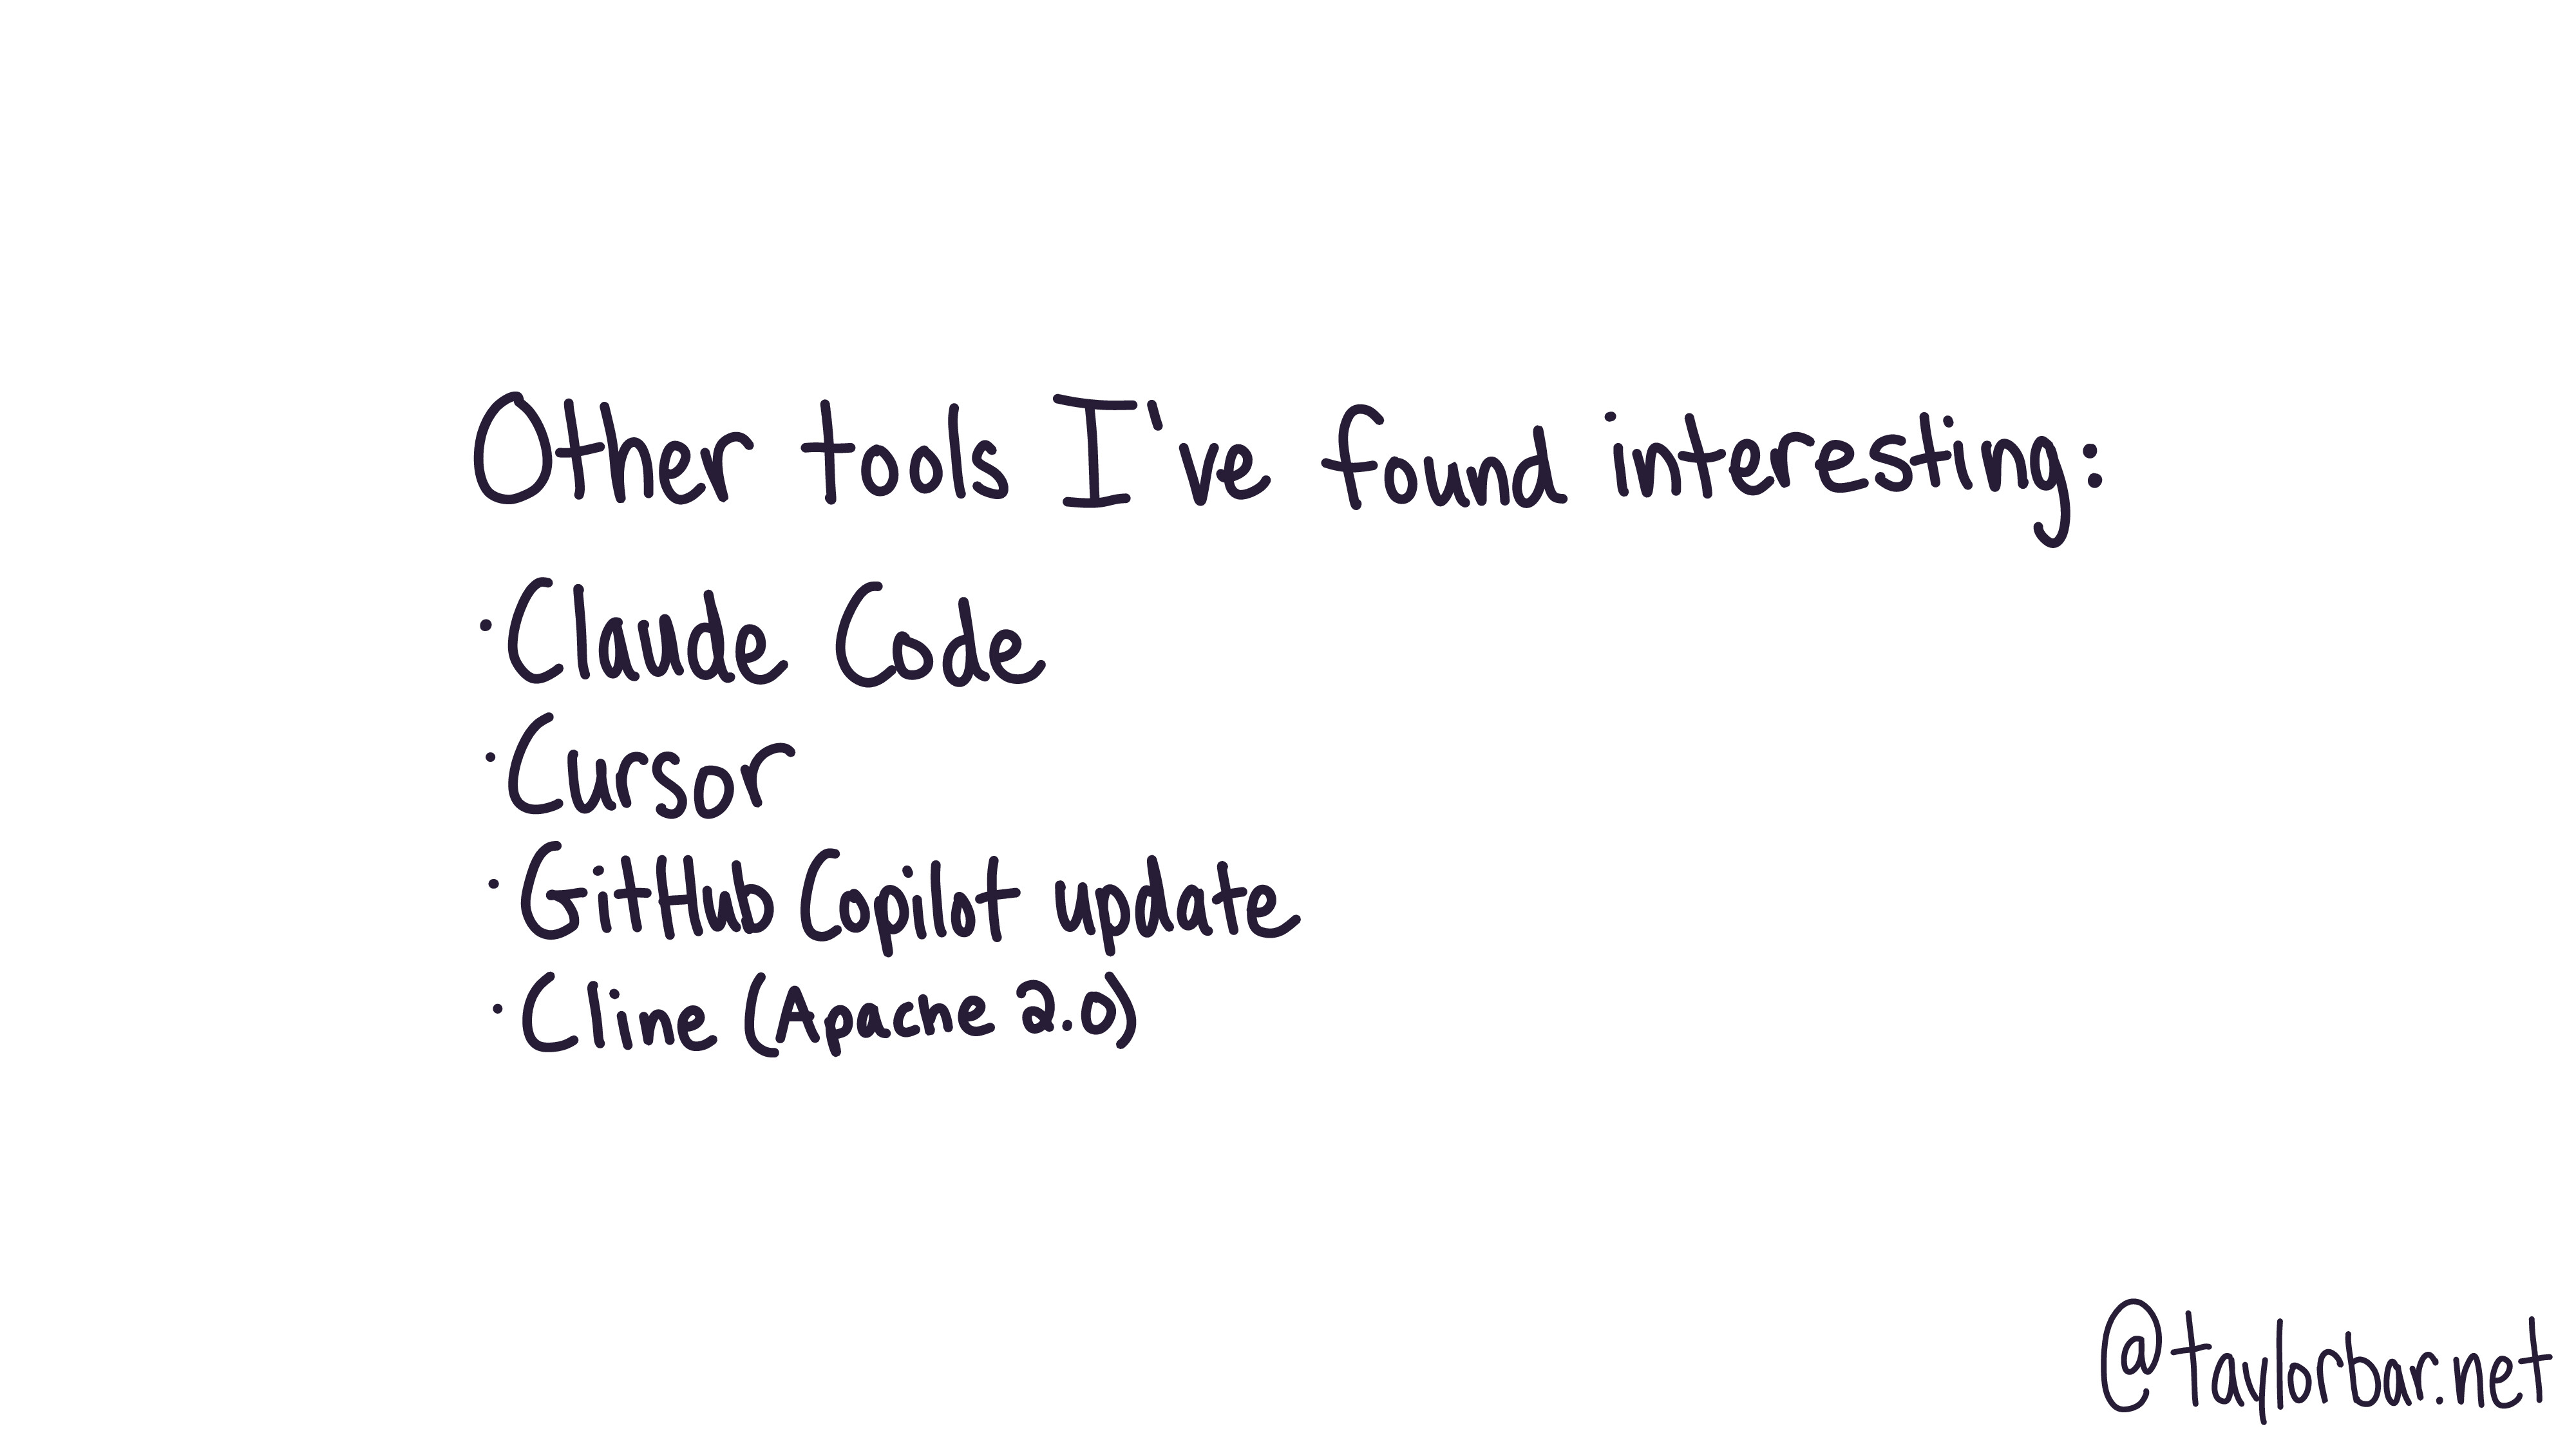 Other tools I've found interesting:
·Claude Code
·Cursor
·GitHub Copilot update
·Cline (Apache 2.0)
@taylorbar.net